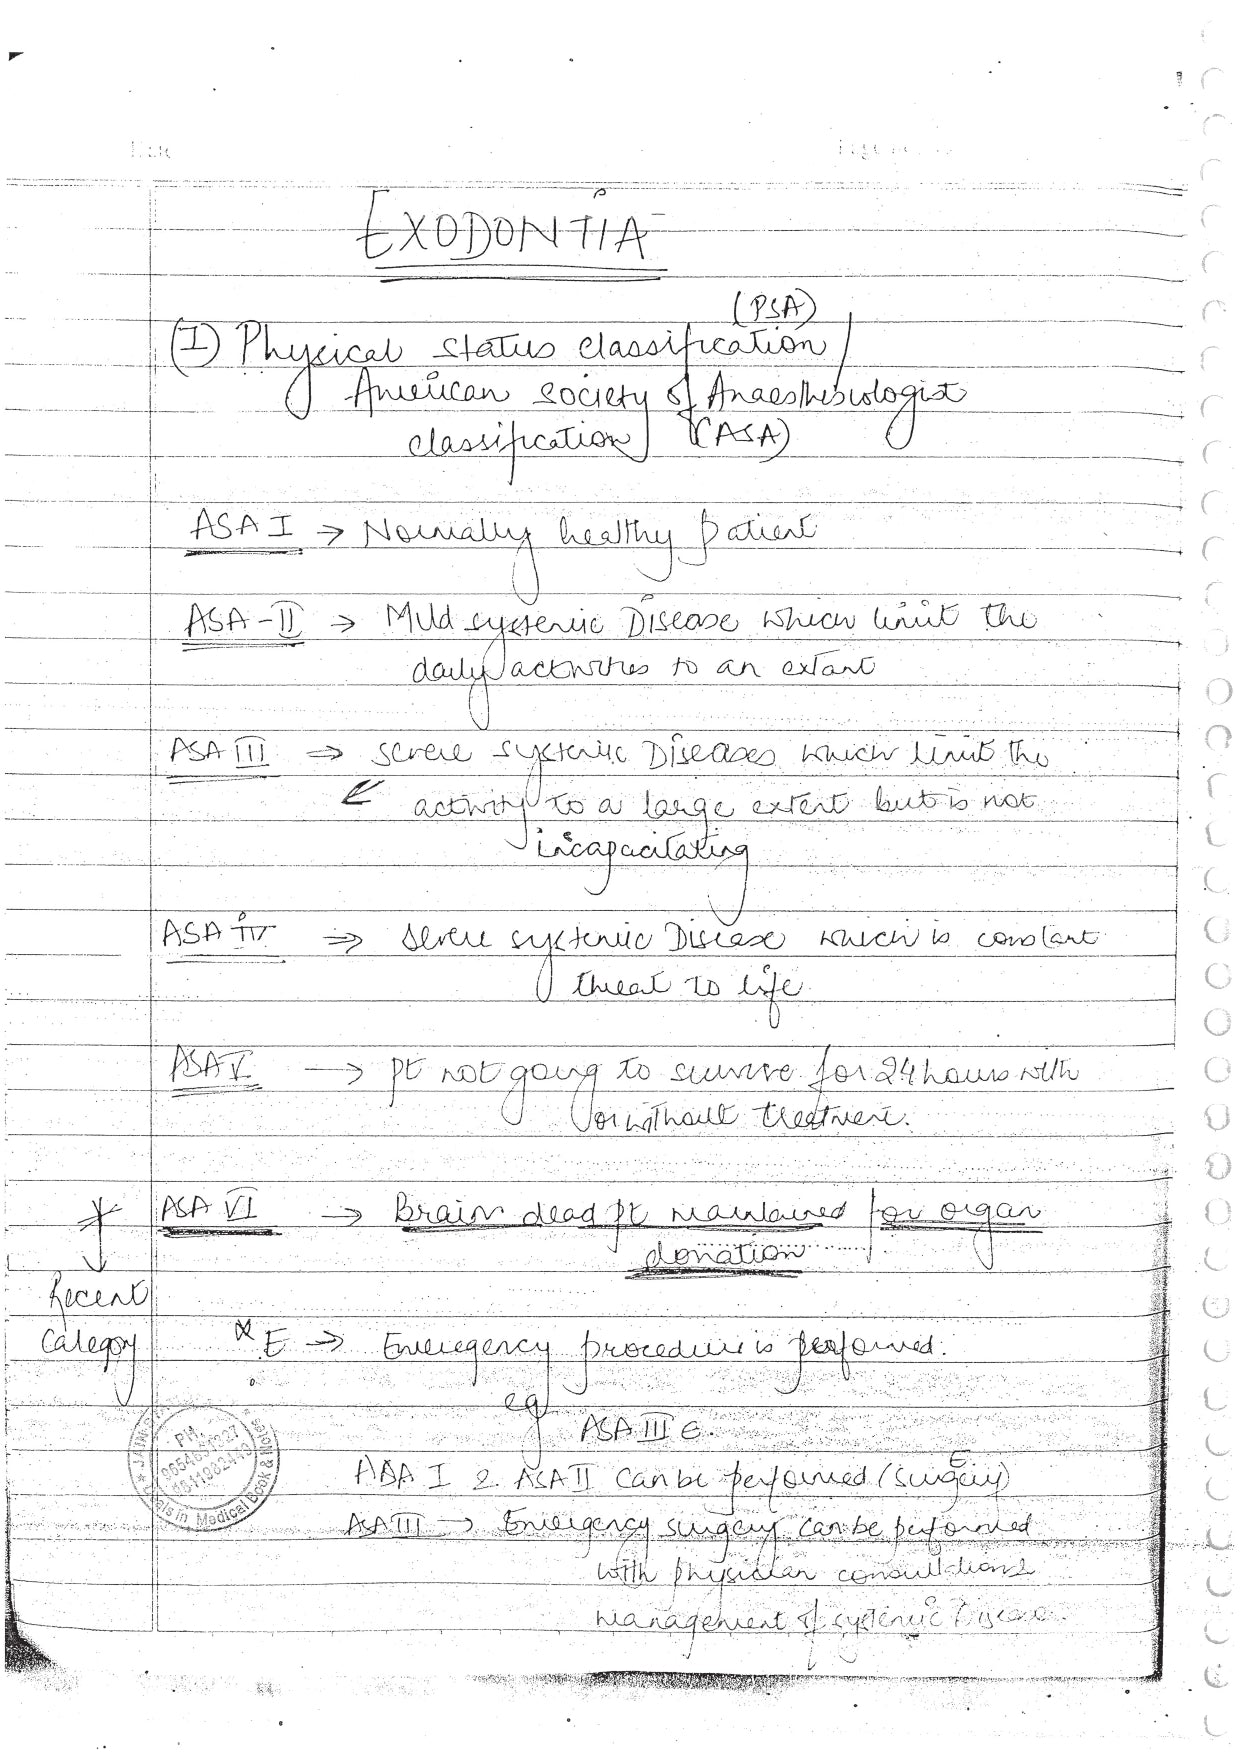 EXODONTIA
(PSA)
(I) Physical status classification /
American society of Anaesthesiologist
classification (ASA)
ASA I → Normally healthy patient
ASA-II → Mild systemic Disease which limit the
daily activities to an extant
ASA III ⇒ severe systemic Diseases which limit the
activity to a large extent but is not
incapacitating
ASA IV ⇒ severe systemic Disease which is constant
threat to life
ASA V → pt not going to survive for 24 hours with
or without treatment.
* ASA VI → Brain dead pt maintained for organ
donation
Recent
Category
* E → Emergency procedure is performed.
eg
ASA III E.
ASA I & ASA II can be performed (surgery)
ASA III → Emergency surgery can be performed
with physician consultation &
management of systemic Disease.
Medical Book & Notes